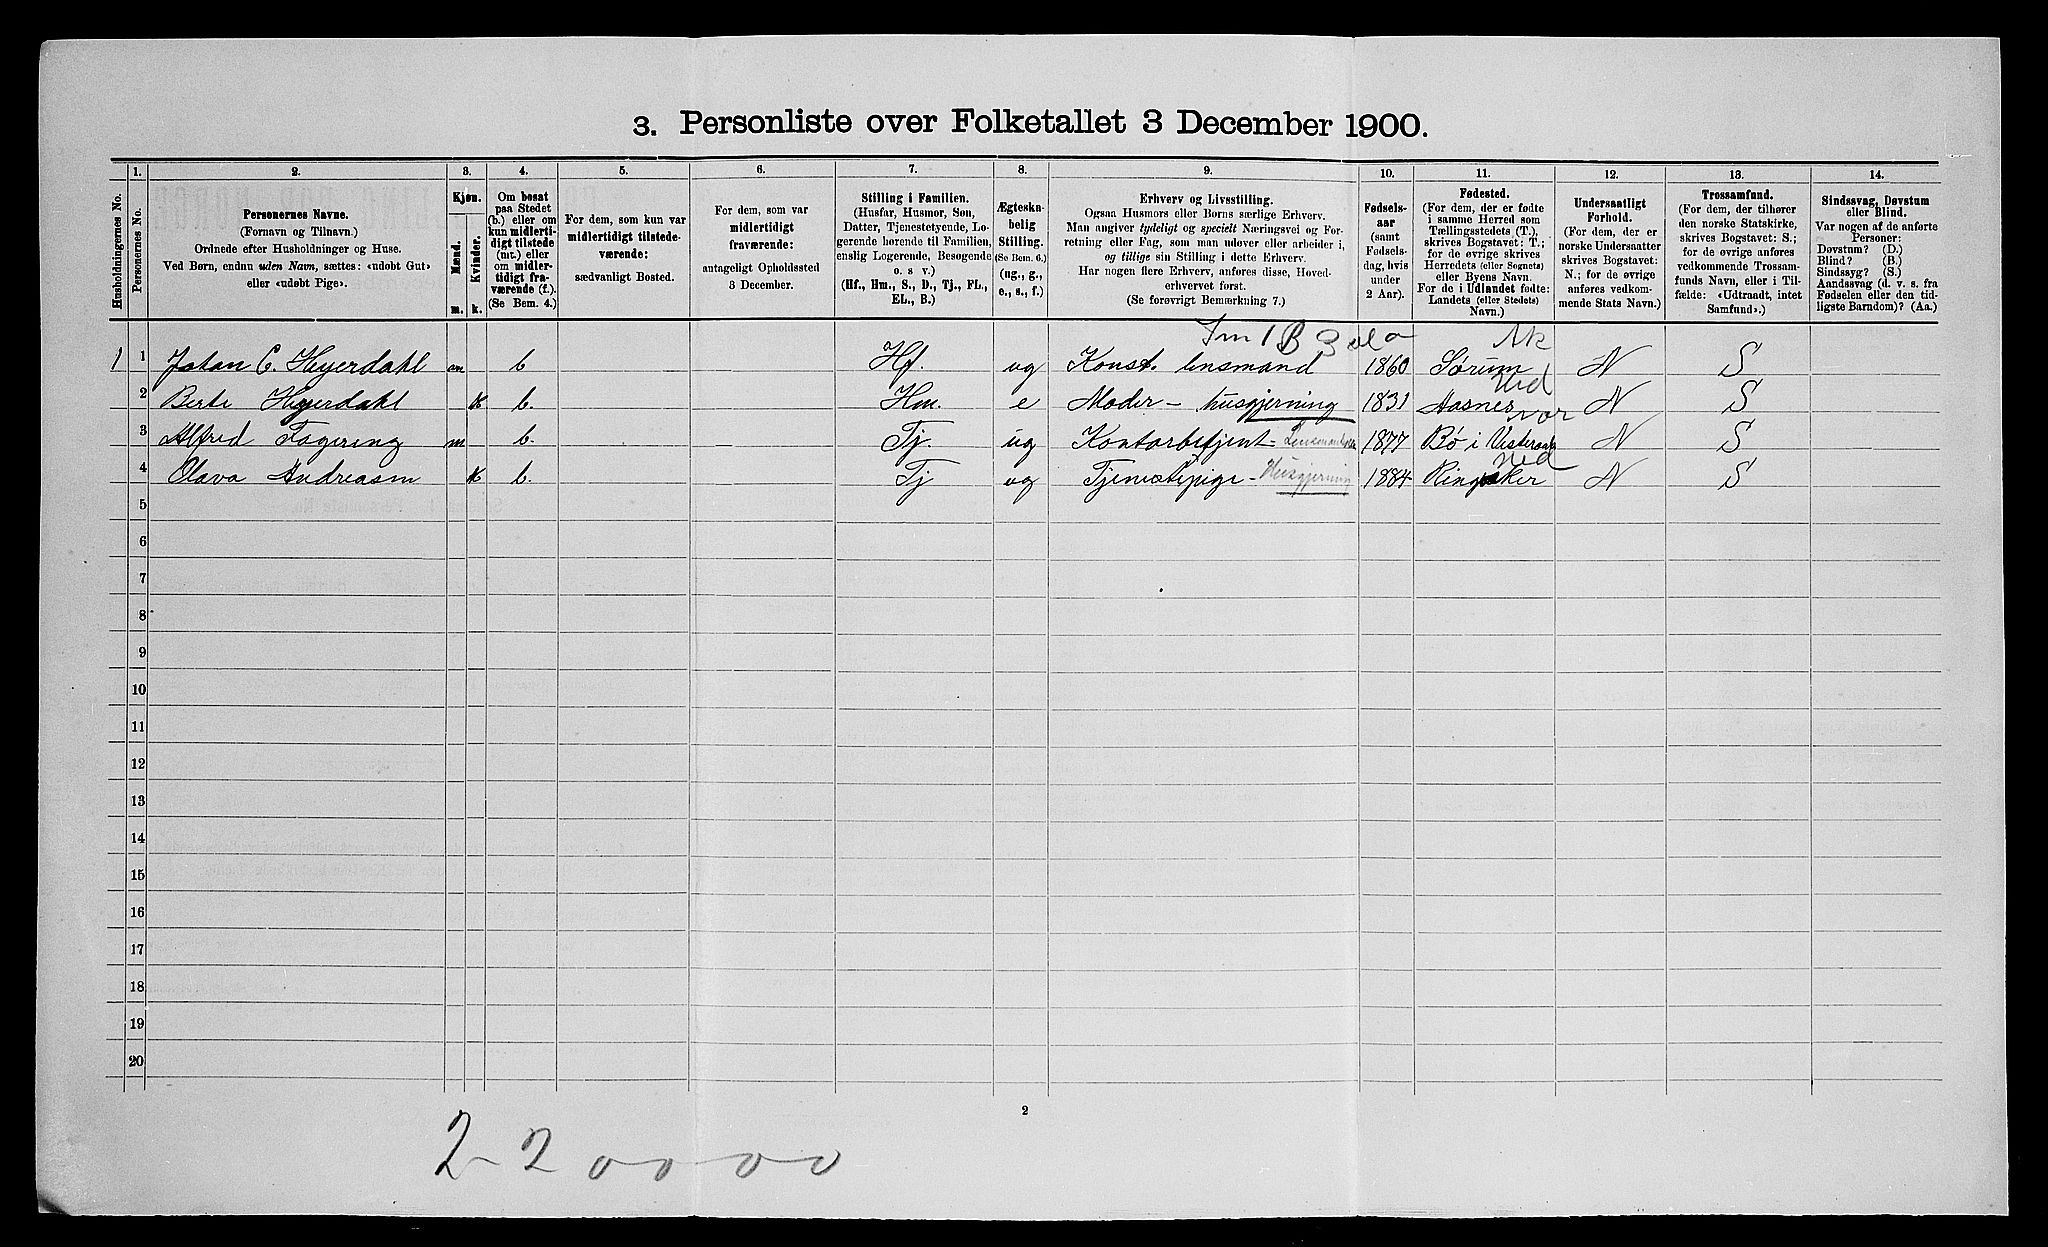 3. Personliste over Folketallet 3 December 1900.
Husholdningernes No.
1.
Personernes No.
2.
Personernes Navne.
(Fornavn og Tilnavn.)
Ordnede efter Husholdninger og Huse.
Ved Børn, endnu uden Navn, sættes: «udøbt Gut»
eller «udøbt Pige».
3.
Kjøn.
Mænd.
Kvinder.
m.
k.
4.
Om bosat
paa Stedet
(b.) eller om
kun midlerti-
digt tilstede
(mt.) eller
om midler-
tidigt fra-
værende (f.).
(Se Bem. 4.)
5.
For dem, som kun var
midlertidigt tilstede-
værende:
sædvanligt Bosted.
6.
For dem, som var
midlertidigt
fraværende:
antageligt Opholdssted
3 December.
7.
Stilling i Familien.
(Husfar, Husmor, Søn,
Datter, Tjenestetyende, Lo-
gerende hørende til Familien,
enslig Logerende, Besøgende
o. s v.)
(Hf., Hm., S., D., Tj., FL.,
EL., B.)
8.
Ægteska-
belig
Stilling.
(Se Bem. 6.)
(ug., g.,
e., s., f.)
9.
Erhverv og Livsstilling.
Ogsaa Husmors eller Børns særlige Erhverv.
Man angiver tydeligt og specielt Næringsvei og For-
retning eller Fag, som man udøver eller arbeider i,
og tillige sin Stilling i dette Erhverv.
Har nogen flere Erhverv, anføres disse, Hoved-
erhvervet først.
(Se forøvrigt Bemærkning 7.)
10.
Fødsels-
aar
(samt
Fødsels-
dag, hvis
under
2 Aar).
11.
Fødested.
(For dem, der er fødte
i samme Herred som
Tællingsstedets (T.),
skrives Bogstavet: T.;
for de øvrige skrives
Herredets (eller Sognets)
eller Byens Navn.
For de i Udlandet fødte:
Landets (eller Stedets)
Navn.)
12.
Undersaatligt
Forhold.
(For dem, der er
norske Undersaatter
skrives Bogstavet:
N.; for de øvrige
anføres vedkom-
mende Stats Navn.)
13.
Trossamfund.
(For dem, der tilhører
den norske Statskirke,
skrives Bogstavet: S.;
for de øvrige anføres
vedkommende Trossam-
funds Navn, eller i Til-
fælde: «Udtraadt, intet
Samfund».)
14.
Sindssvag, Døvstum
eller Blind.
Var nogen af de anførte
Personer:
Døvstum? (D.)
Blind? (B.)
Sindssyg? (S.)
Aandssvag (d. v. s. fra
Fødselen eller den tid-
ligste Barndom)? (Aa.)
Ak
1 1 Johan C. Heyerdahl m b Hf. ug Konst. lensmand 1860 Sørum N S
Hed
2 Berte Heyerdahl k b. Hm. e Moder - husgjerning 1831 Aasnes N S
Nor
3 Alfred Fagering m b. Tj. ug Kontorbetjent - 1877 Bø i Vesteraalen N S
Hed
4 Olava Andreasen k b. Tj ug Tjenestepige - Husgjerning 1884 Ringsaker N S
5
6
7
8
9
10
11
12
13
14
15
16
17
18
19
20
2
2 - 2 0 0 0 0